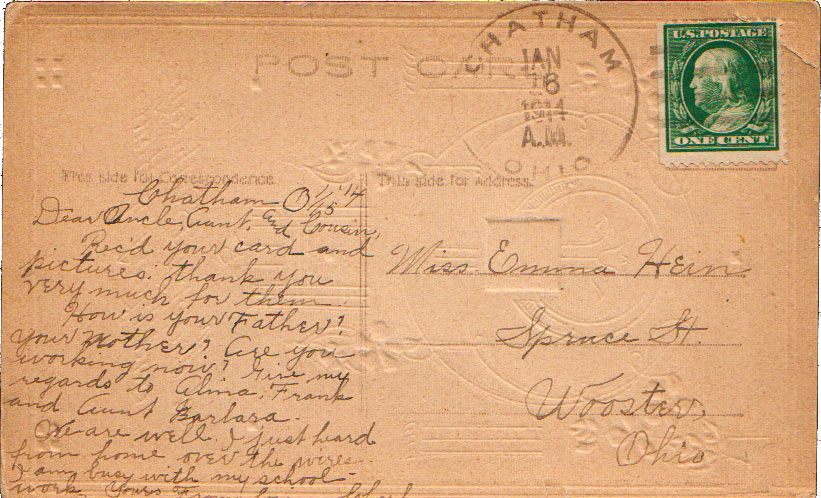 POST CARD
CHATHAM
JAN
16
1914
A.M.
OHIO
U.S. POSTAGE
ONE CENT
This side for Correspondence.
This side for Address.
Chatham O 1/15 '14
Dear Uncle, Aunt, and Cousin,
Rec'd your card and
pictures. thank you
very much for them.
How is your Father?
your Mother? Are you
working now? Give my
regards to Alma, Frank
and Aunt Barbara.
We are well. I just heard
from home over the wires.
I am busy with my school-
work. Yours
Miss Emma Hein
Spruce St.
Wooster,
Ohio